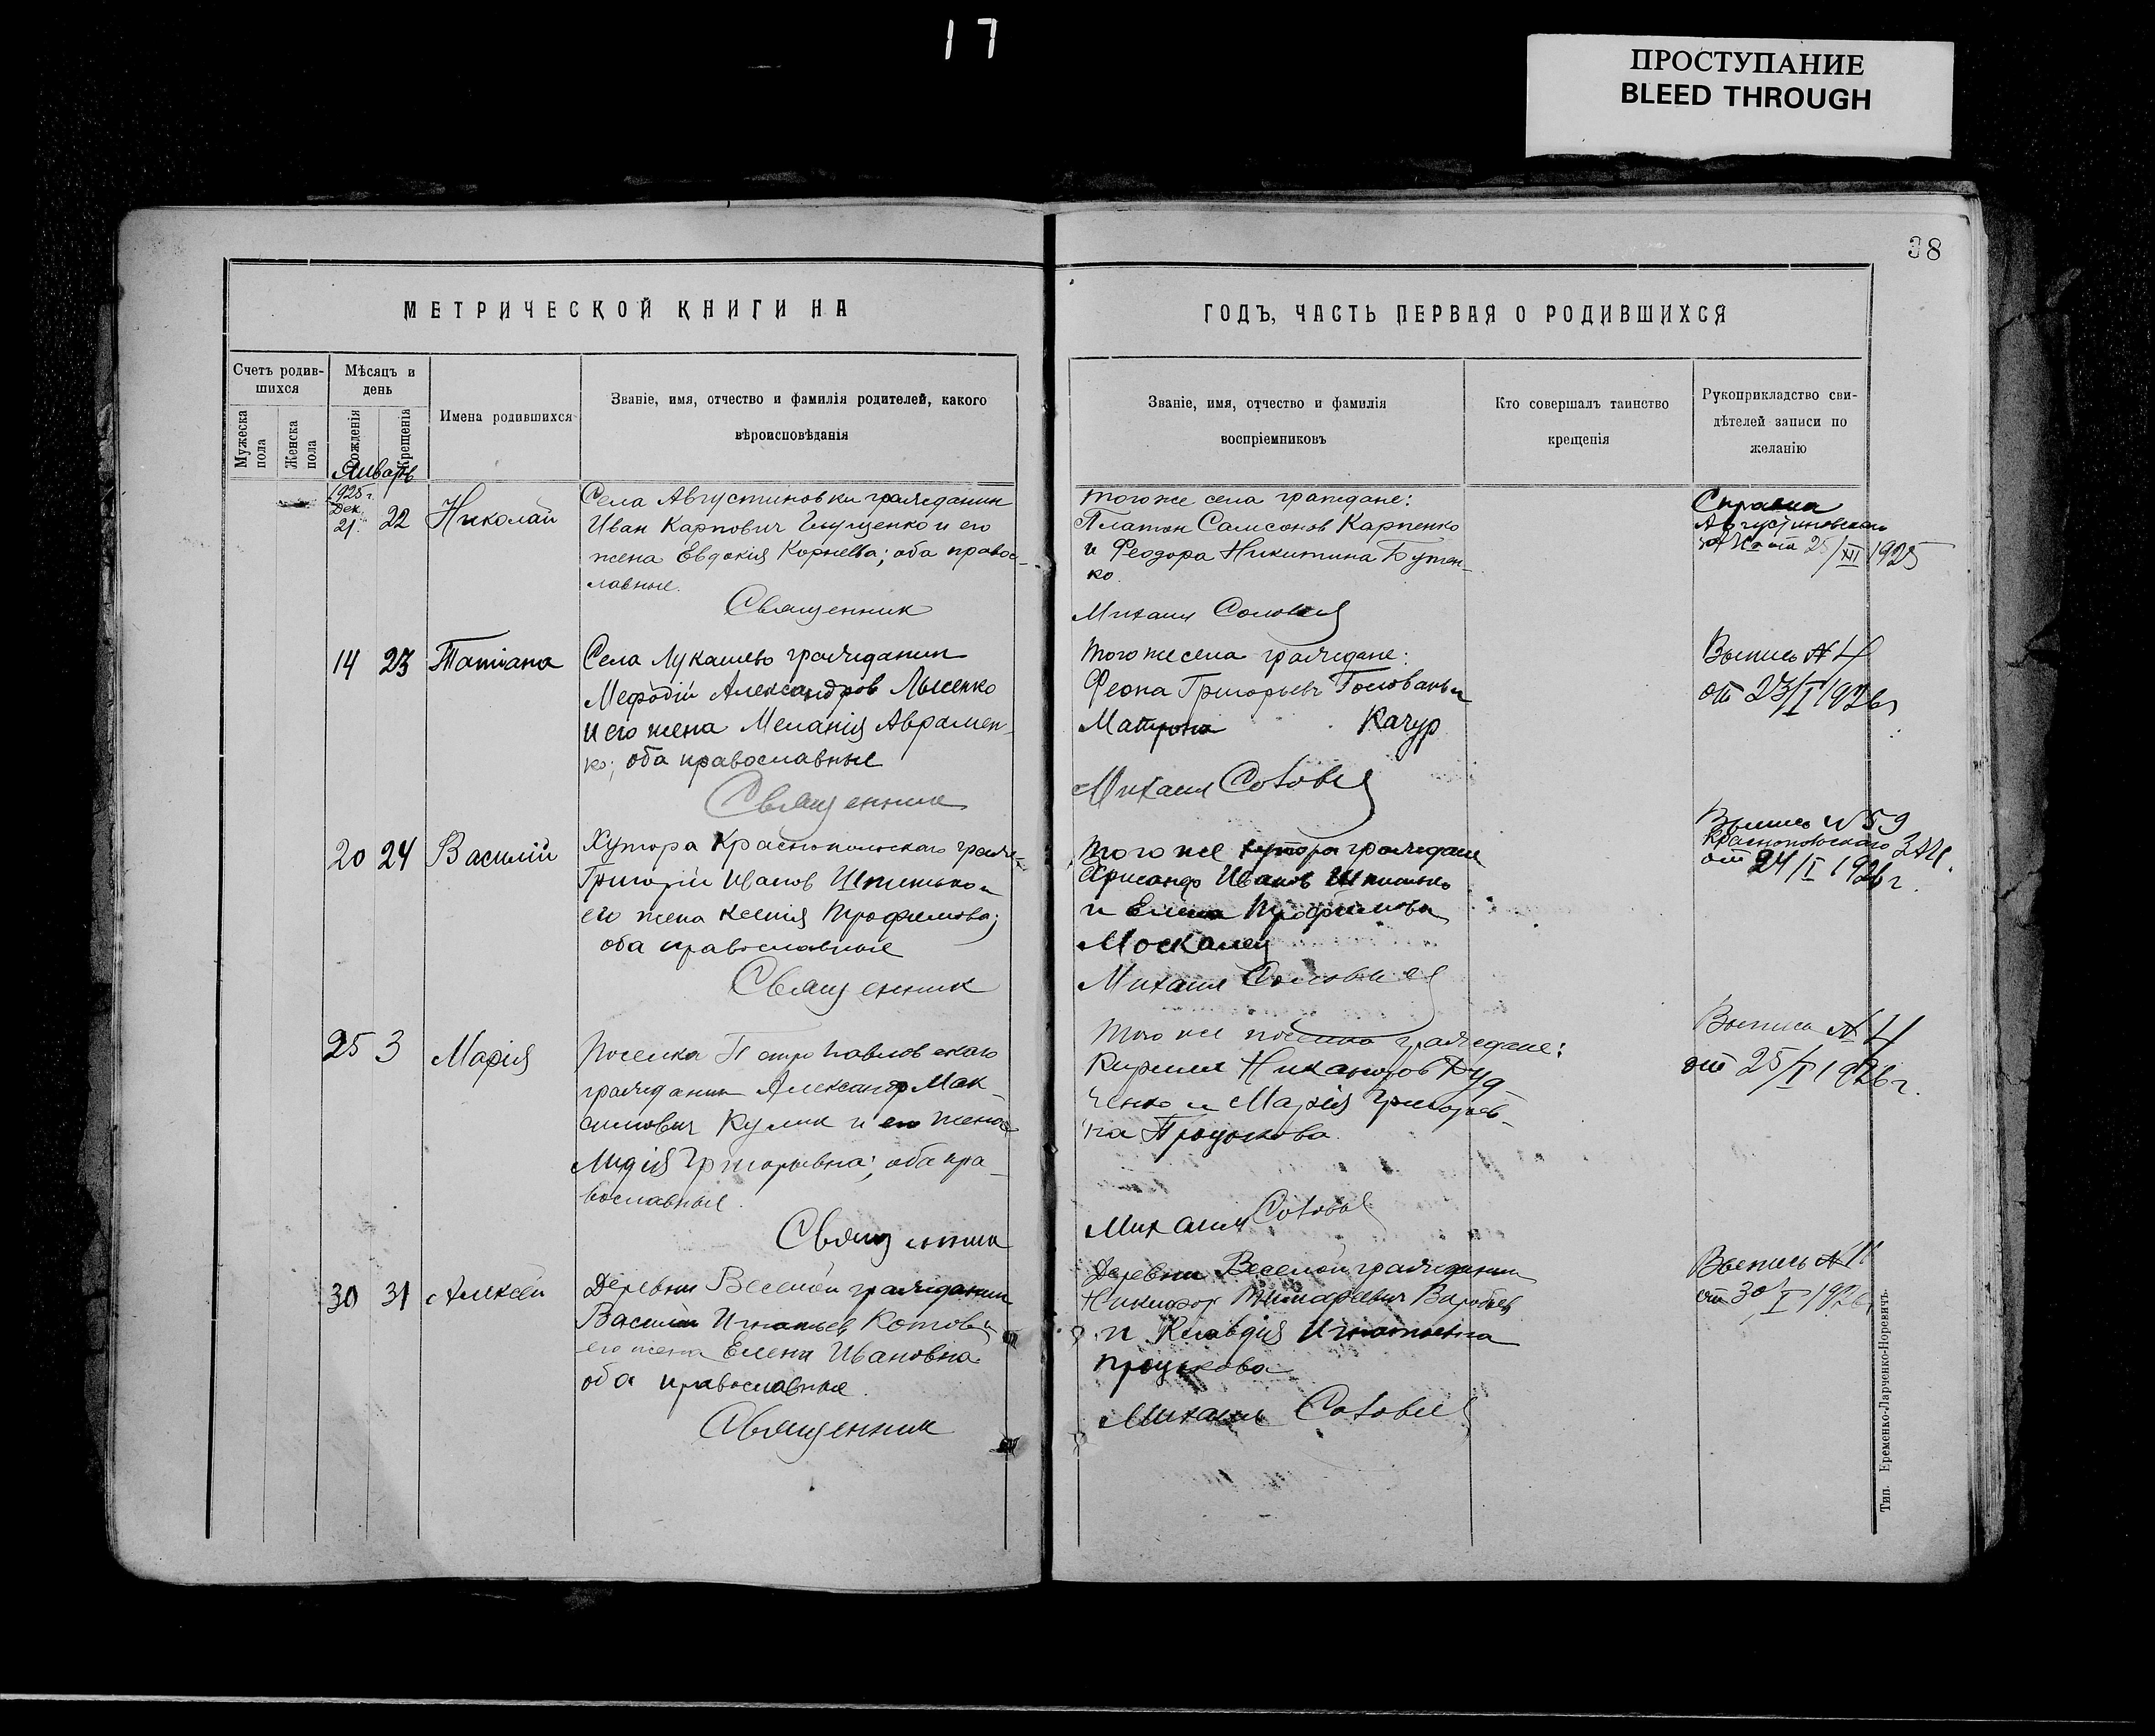 17
ПРОСТУПАНИЕ
BLEED THROUGH
38
МЕТРИЧЕСКОЙ КНИГИ НА
ГОДЪ, ЧАСТЬ ПЕРВАЯ О РОДИВШИХСЯ
Счетъ родив-
шихся
Мужеска пола
Женска пола
Мѣсяцъ и
день
Рожденія
Крещенія
Имена родившихся
Званіе, имя, отчество и фамилія родителей, какого
вѣроисповѣданія
Званіе, имя, отчество и фамилія
воспріемниковъ
Кто совершалъ таинство
крещенія
Рукоприкладство сви-
дѣтелей записи по
желанію
Январь
1925 г.
Дек.
21. 22 Николай
Села Августиновки гражданин
Иван Карпович Глущенко и его
жена Евдокия Корнева; оба правос-
лавные.
Священник
того же села граждане:
Платон Самсонов Карпенко
и Феодора Никитина Бутен-
ко.
Михаил
Справка
Августиновского
25/XII 1925
14 23 Татiана
Села Лукашево гражданин
Мефодiй Александров Лысенко
и его жена Меланiя Авраmен-
ко; оба православные
Священник
того же села граждане:
Феона Григорьевъ
Матрона Качур
Михаил Соловьев
Выпись № 4
от 23/I 1926 г
20 24 Василiй
Хутора Краснопольского гражд-
Григорiй Иванов
его жена Ксенiя Трофимова;
оба православные
Священник
того же хутора граждане
Иванов
и Елена Трофимова
Москалец
Михаил Соловьев
Выпись № 59
Краснопольского ЗАГС.
от 24/I 1926 г.
25 3 Марiя
Поселка Петропавловского
гражданин Александр Мак-
симович Кулик и его жена
Лидiя Григорьевна; оба пра-
вославные.
Священник
того же поселка граждане:
Кирилл Никаноров Дуд-
ченко и Марiя Григорьев-
на Процькова.
Михаил Соловьев
Выпись № 4
от 25/I 1926 г.
30 31 Алексей
Деревни Веселой гражданин
Василiй Игнатьев Котов и
его жена Елена Ивановна
оба православные.
Священник
Деревни Веселой гражданин
Никифор
и Клавдiя Игнатьевна
Процькова
Михаил Соловьев
Выпись № 11
от 30/I 1926 г
Тип. Еременко-Ларченко-Норевичъ.